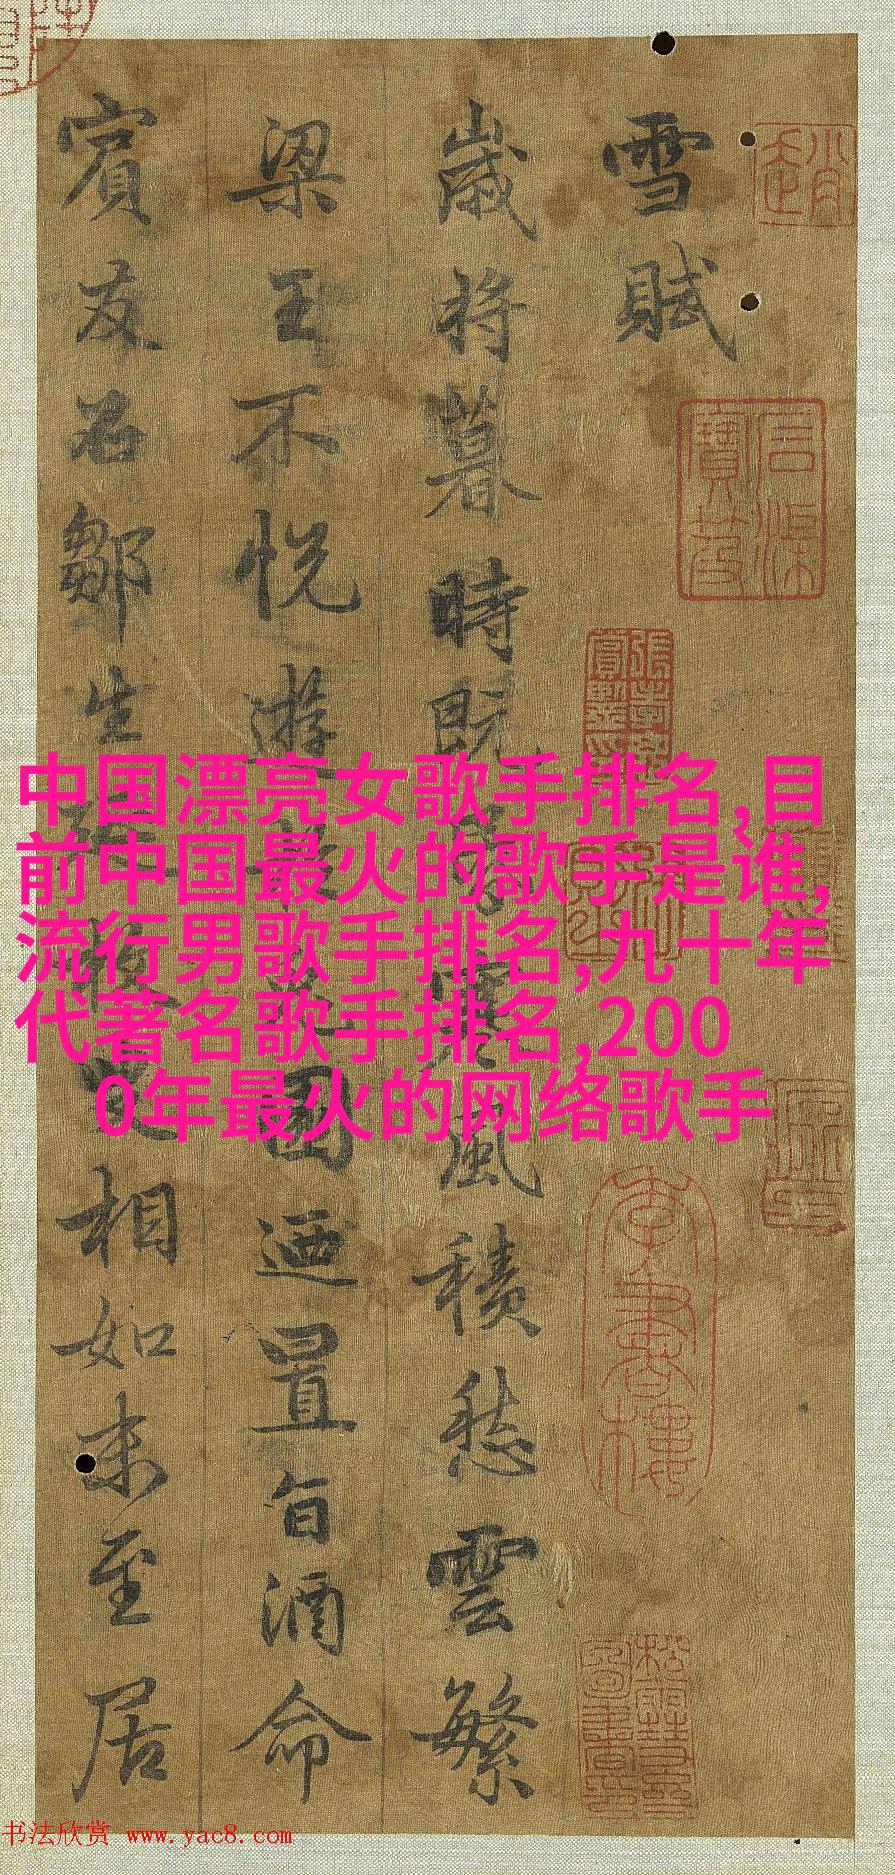 雪賦
歲将暮時既寒風積愁雲繁
梁王不悅遊園迺置旨酒命
賓友召鄒生相如未至居
中国漂亮女歌手排名,目
前中国最火的歌手是谁,
流行男歌手排名,九十年
代著名歌手排名,200
0年最火的网络歌手
书法欣赏 www.yac8.com